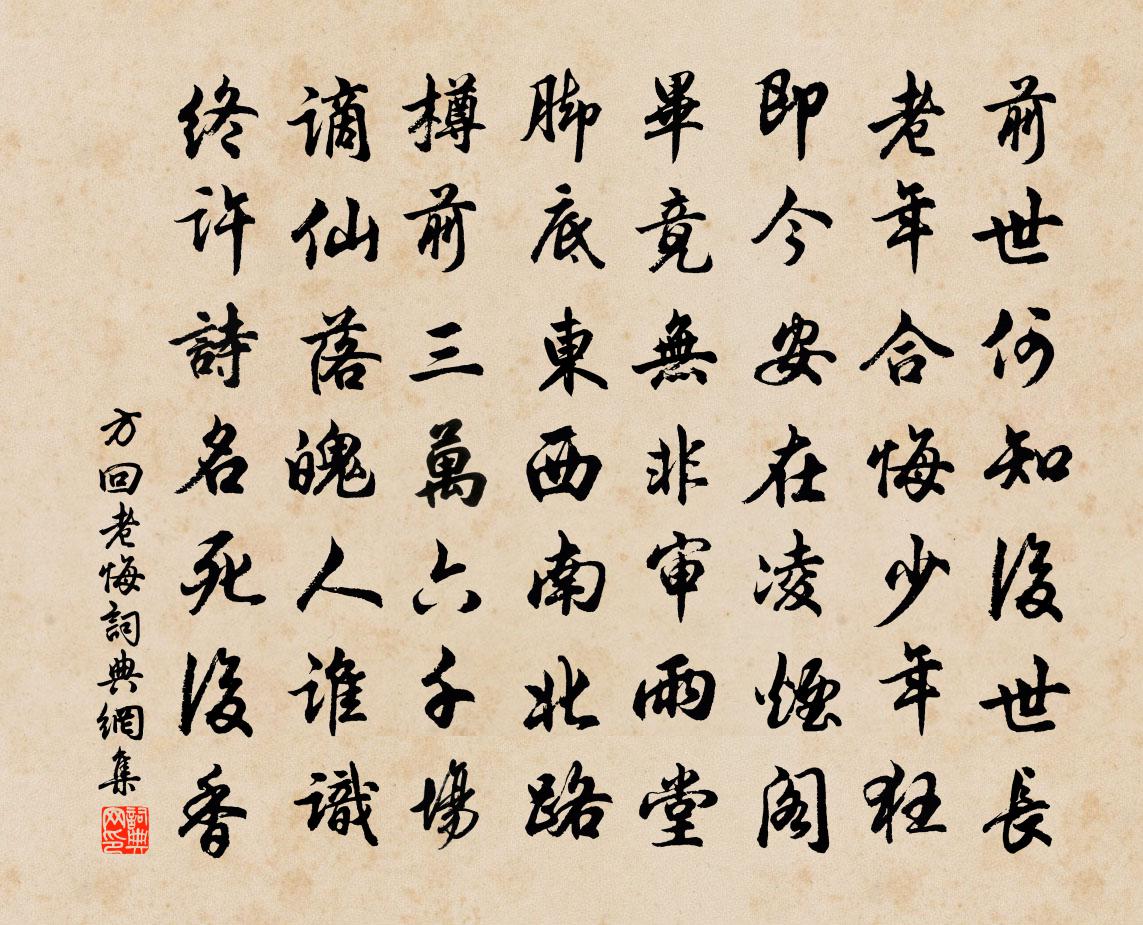 前世何知後世長
老年合悔少年狂
即今安在凌煙閣
畢竟無非审雨堂
脚底東西南北路
樽前三萬六千場
謫仙落魄人誰識
終許詩名死後香
方回老悔詞典網集
詞典网印